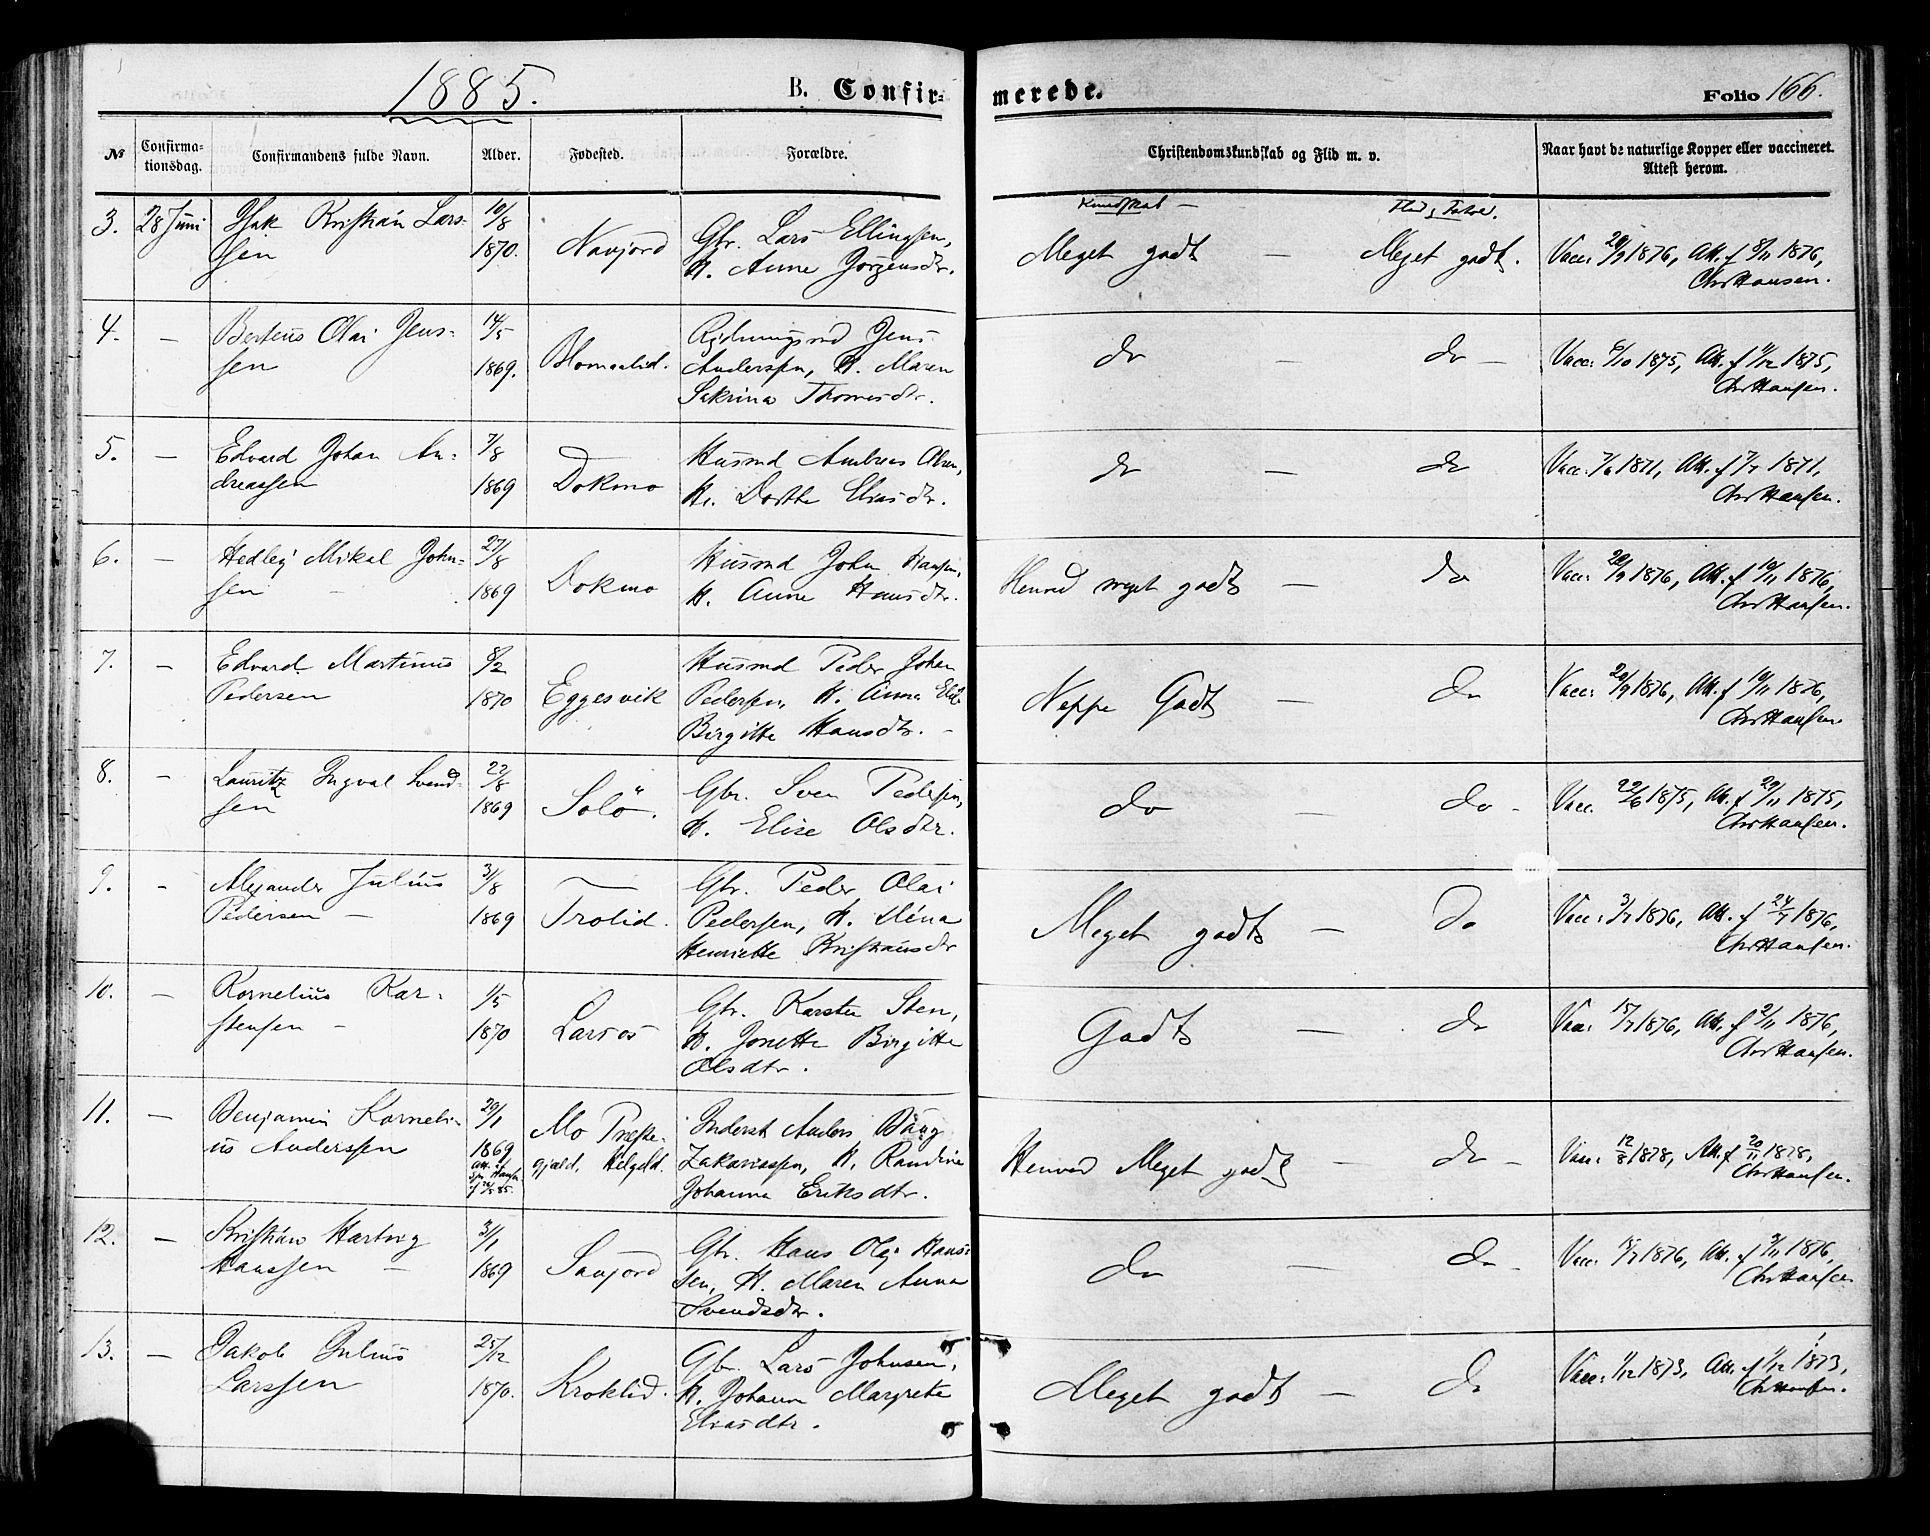 1885.
B. Confir-
merede.
Folio 166.
No
Confirma-
tionsdag.
Confirmandens fulde Navn.
Alder.
Fødested.
Forældre.
Christendomskundskab og Flid m. v.
Naar havt de naturlige Kopper eller vaccineret.
Attest herom.
Kundskab —
3. 28 Juni Isak Kristian Lars-
sen
10/8
1870.
Navjord
Gbr. Lars Ellingsen,
H. Anne Jørgensdr.
Meget godt — Meget godt.
Vacc: 20/9 1876, Att. f 8/11 1876,
Chr Hansen.
4. — Berteus Olai Jens-
sen
14/5
1869.
Blomaalid.
Jens
Anderssen, H. Maren
Sakrina Thomasdr.
do — do —
Vacc: 6/10 1875, Att. f 11/12 1875,
Chr Hansen.
5. — Edvard Johan An-
dreassen
7/8
1869
Dokmo
Husmd Andreas Olsen,
H. Dorthe Eliasdr.
do — do
Vacc: 7/6 1871, Att. f 7/7 1871,
Chr Hansen.
6. — Hedley Mikal John-
sen —
27/8
1869
Dokmo
Husmd John Hansen,
H. Anne Hansdtr.
Henved meget godt — do
Vacc: 20/9 1876, Att. f 10/11 1876,
Chr Hansen.
7. — Edvard Martinus
Pedersen
8/2
1870
Eggesvik
Husmd Peder Johan
Pedersen, H. Anna
Birgitte Hansdtr. —
Neppe Godt — do
Vacc: 20/9 1876, Att. f 10/11 1876,
Chr Hansen
8. — Lauritz Ingval Svend-
sen
22/8
1869
Solö.
Gbr. Sven Pedersen,
H. Elise Olsdtr.
do — do —
Vacc. 22/6 1875, Att. f 29/11 1875,
Chr Hansen.
9. — Alexander Julius
Pedersen —
31/8
1869
Trolid.
Gbr. Peder Olai
Pedersen, H.
Henriette Kristiansdr
Meget godt — do
Vacc: 3/7 1876, Att. f 24/7 1876,
Chr Hansen.
10. — Kornelius Kar-
stensen —
1/5
1870
Larsos
Gbr. Karsten Sten,
H. Jonette Birgitte
Olsdtr.
Godt — do
Vacc: 15/7 1876, Att. f 2/11 1876,
Chr Hansen.
11. — Benjamin Korneli-
us Anderssen
29/1
1869
Mo Præste-
gjæld, Helgeld.
Inderst Anders Baug
Zakariassen, H. Randine
Johanna Eriksdtr.
Henved Meget godt — do —
Vacc: 12/8 1878, Att. f 20/11 1878,
Chr Hansen.
12. — Kristian Hartvig
Hanssen —
31/1
1869
Savjord
Gbr. Hans Olai Hans-
sen, H. Maren Anna
Svendsdtr.
do — do —
Vacc: 15/7 1876, Att. f 3/11 1876,
Chr Hansen
13. — Jakob Julius
Larssen
25/12
1870.
Kroklid.
Gbr. Lars Johnsen,
H. Johanna Margrete
Eliasdtr.
Meget godt — do
Vacc: 1/12 1873, Att. f 1/12 1873,
Chr Hansen.